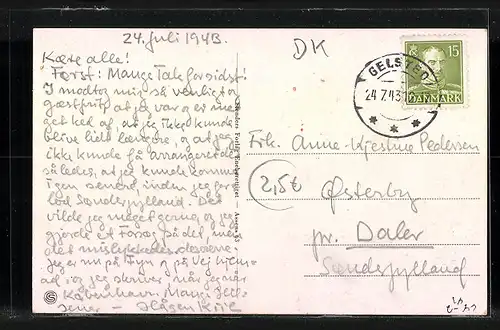 24. Juli 1943.
DK
Kære alle!
Først: Mange Tak for sidst!
I modtog mig så venligt og
gæstfrit, at jeg var og er me-
get ked af, at jeg ikke kunde
blive lidt længere, og at jeg
ikke kunde få arrangeret det
således, at jeg kunde komme
igen senere, inden jeg for-
lod Sønderjylland. Det
vilde jeg meget gerne, og jeg
gjorde et Forsøg på det, men
det mislykkedes desværre.
Jeg er nu på Fyn og på Vej hjem-
ad, og jeg skriver, når jeg når
København. Mange Hil-
sener —
GELSTED
24.7.43
15
DANMARK
Frk. Anne-Kjestine Pedersen
2,5€
Østerby
pr. Daler
Sønderjylland